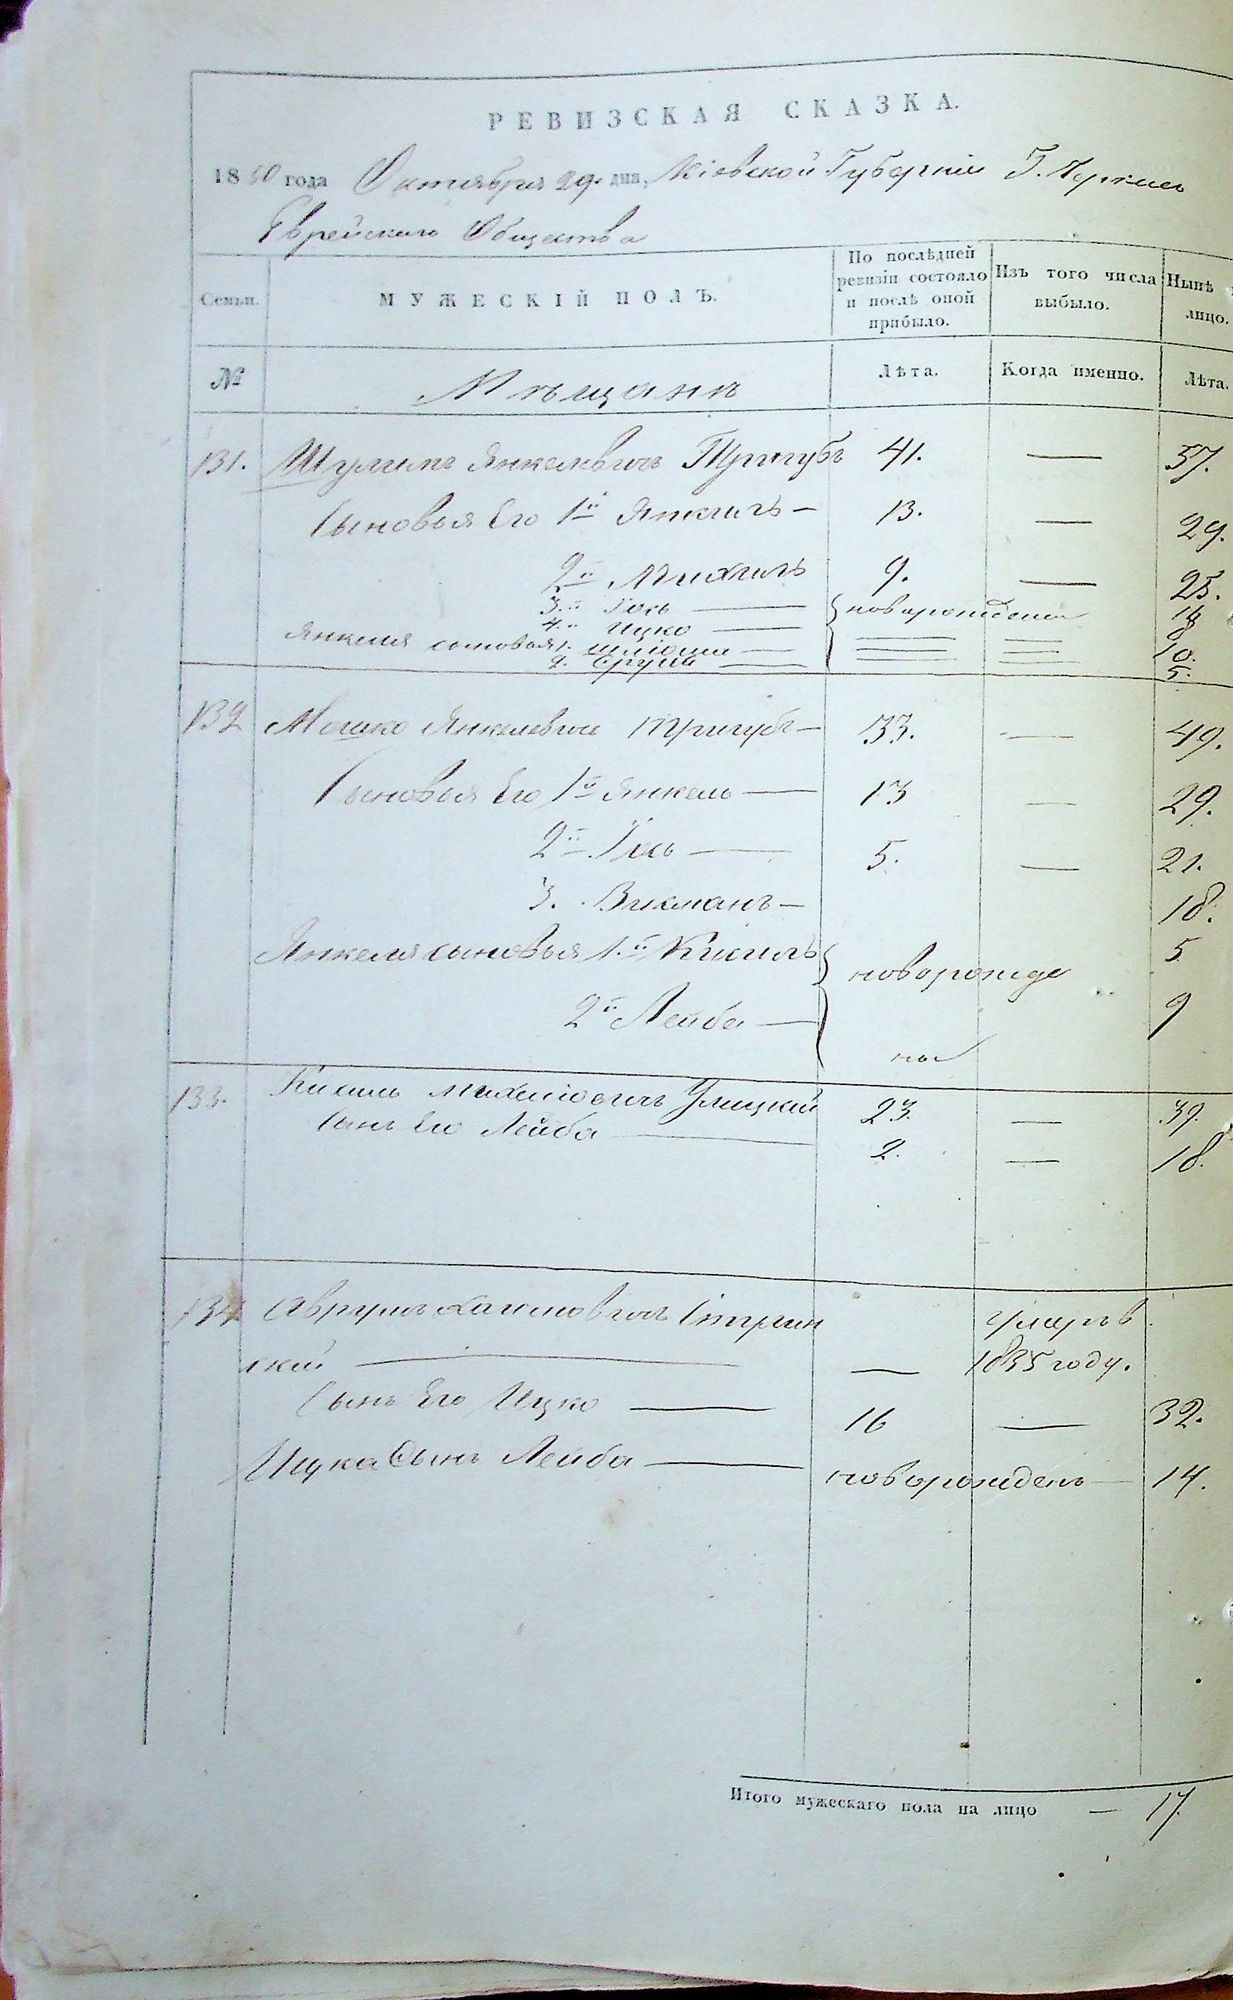 РЕВИЗСКАЯ СКАЗКА.
1850 года Октября 29. дня, Кіевской Губерніи Г. Черкасъ
Еврейскаго Общества
Семьи.
МУЖЕСКІЙ ПОЛЪ.
По послѣдней ревизіи состояло и послѣ оной прибыло.
Изъ того числа выбыло.
Нынѣ
лицо.
№
Мѣщанъ
Лѣта.
Когда именно.
Лѣта.
131. Шулимъ Янкелевичъ Тригубъ 41. — 57.
Сыновья Его 1й Янкель — 13. — 29.
2й Михель 9. — 25.
3й Іось — новорождены 18
4й Ицко — 8
Янкеля сыновья 1. — 10.
2. Сруль — 5.
132 Мошко Янкелевичъ Тригубъ — 33. — 49.
Сыновья Его 1й Янкель — 13 — 29.
2й Іось — 5. — 21.
3. Зикманъ — 18.
Янкеля сыновья 1й Кисиль новорожде 5
2й Лейба — ны 9
133. Кисиль Михелевичъ Улицкий 23. — 39.
Сынъ Его Лейба — 2. — 18.
134 Аврумъ Хаимовичъ
ский — — умеръ в 1835 году.
Сынъ Его Ицко — 16 — 32.
Ицка Сынъ Лейба — новорожденъ — 14.
Итого мужескаго пола на лицо — 17.